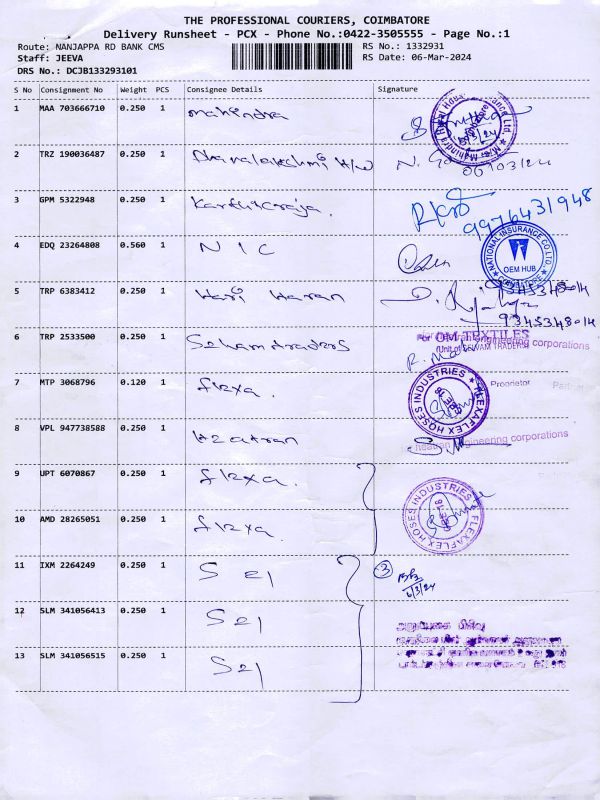 THE PROFESSIONAL COURIERS, COIMBATORE
Delivery Runsheet - PCX - Phone No.:0422-3505555 - Page No.:1
Route: NANJAPPA RD BANK CMS
RS No.: 1332931
Staff: JEEVA
RS Date: 06-Mar-2024
DRS No.: DCJB133293101
S No Consignment No Weight PCS Consignee Details Signature
1 MAA 703666710 0.250 1 mahindra
2 TRZ 190036487 0.250 1 Dhanalakshmi H/W N. 06/03/24
3 GPM 5322948 0.250 1 Karthickraja. 9976431948
NATIONAL INSURANCE CO.LTD.
OEM HUB
4 EDQ 23264808 0.560 1 NIC
5 TRP 6383412 0.250 1 Hari Haran
9345348014
9345348014
6 TRP 2533500 0.250 1 Sehamtraders
For OM TEXTILES
(Unit of SEWAM TRADERS)
engineering corporations
7 MTP 3068796 0.120 1 flexa.
FLEXAFLEX HOSES INDUSTRIES
Proprietor Partner
8 VPL 947738588 0.250 1
engineering corporations
9 UPT 6070867 0.250 1 flexa.
FLEXAFLEX HOSES INDUSTRIES
10 AMD 28265051 0.250 1 flexa.
11 IXM 2264249 0.250 1 S E1 3
6/3/24
12 SLM 341056413 0.250 1 S E1
13 SLM 341056515 0.250 1 S E1